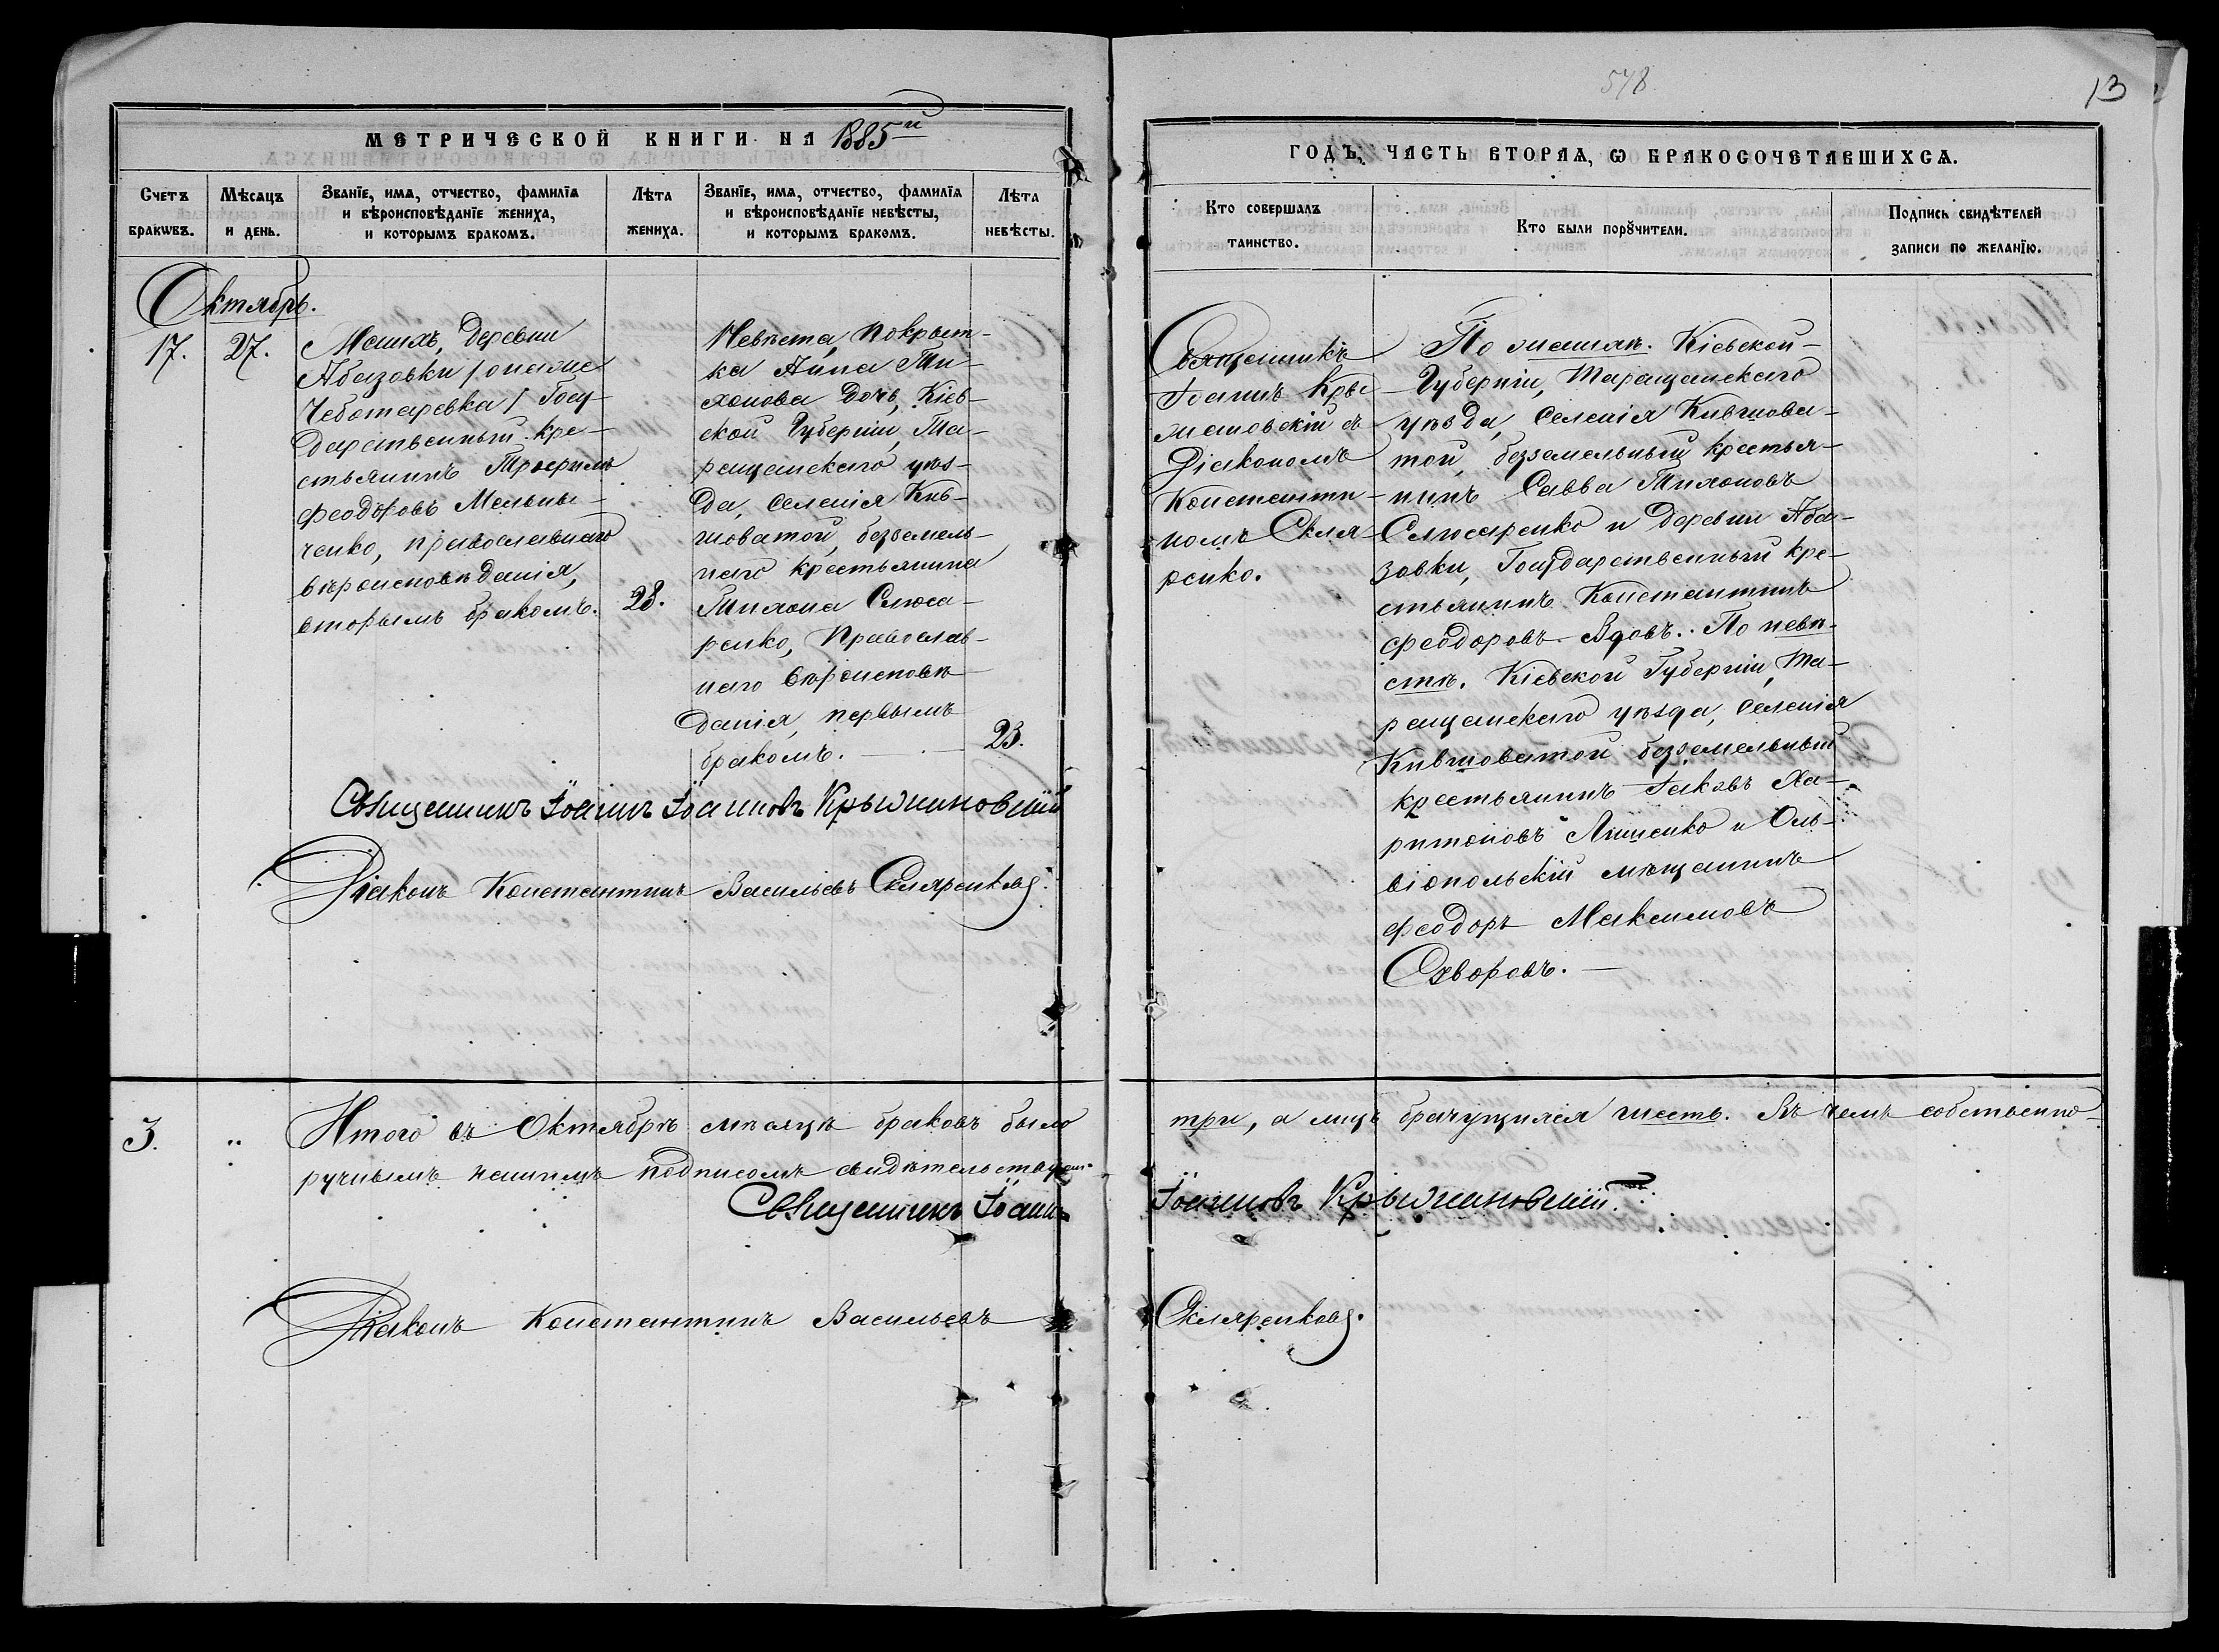 578
13
МЕТРИЧЕСКОЙ КНИГИ НА 1885й
ГОДЪ, ЧАСТЬ ВТОРАЯ, Ѡ БРАКОСОЧЕТАВШИХСЯ.
Счетъ браковъ.
Мѣсяцъ и день.
Званїе, имя, отчество, фамилїя
и вѣроисповѣданїе жениха,
и которымъ бракомъ.
Лѣта жениха.
Званїе, имя, отчество, фамилїя
и вѣроисповѣданїе невѣсты,
и которымъ бракомъ.
Лѣта невѣсты.
Кто совершалъ таинство.
Кто были порꙋчители.
Подпись свидѣтелей
записи по желанїю.
Октябрь.
17.
27.
Женихъ, Деревни
Абазовки /онаже
Чеботаревка/ Госу-
дарственный кре-
стьянинъ Трофимъ
Феодоровъ Мельни-
ченко, православнаго
вѣроисповѣданія,
вторымъ бракомъ.
28.
Невѣста, Покрыт-
ка Анна Ти-
хонова Дочь, Кіев-
ской Губерніи, Та-
ращанскаго уѣз-
да, Селенія Кив-
шоватой, безземель-
наго крестьянина
Тихона Слюса-
ренко, Православ-
наго вѣроисповѣ-
данія, первымъ
бракомъ.
23.
Священникъ Іоаннъ Іоанновъ Крыжановскій
Діаконъ Константинъ Васильевъ Скляренковъ.
Священникъ
Іоаннъ Кры-
жановскій съ
Діакономъ
Константи-
номъ Скля-
ренко.
По женихѣ. Кіевской
Губерніи, Таращанскаго
уѣзда, Селенія Кившова-
той, безземельный крестья-
нинъ Савва Тихоновъ
Слюсаренко и Деревни Аба-
зовки, Государственный кре-
стьянинъ Константинъ
Феодоровъ Вдовъ. По невѣ-
стѣ. Кіевской Губерніи, Та-
ращанскаго уѣзда, Селенія
Кившоватой безземельный
крестьянинъ Іаковъ Ха-
ритоновъ Ляшенко и Оль-
віопольскій мѣщанинъ
Феодоръ Максимовъ
Охворовъ.
3. "
Итого въ Октябрѣ мѣсяцѣ браковъ было три, а лицъ брачущихся шесть. Въ чемъ собственно-
ручнымъ нашимъ подписомъ свидѣтельствуемъ
Священникъ Іоаннъ Іоанновъ Крыжановскій.
Діаконъ Константинъ Васильевъ Скляренковъ.